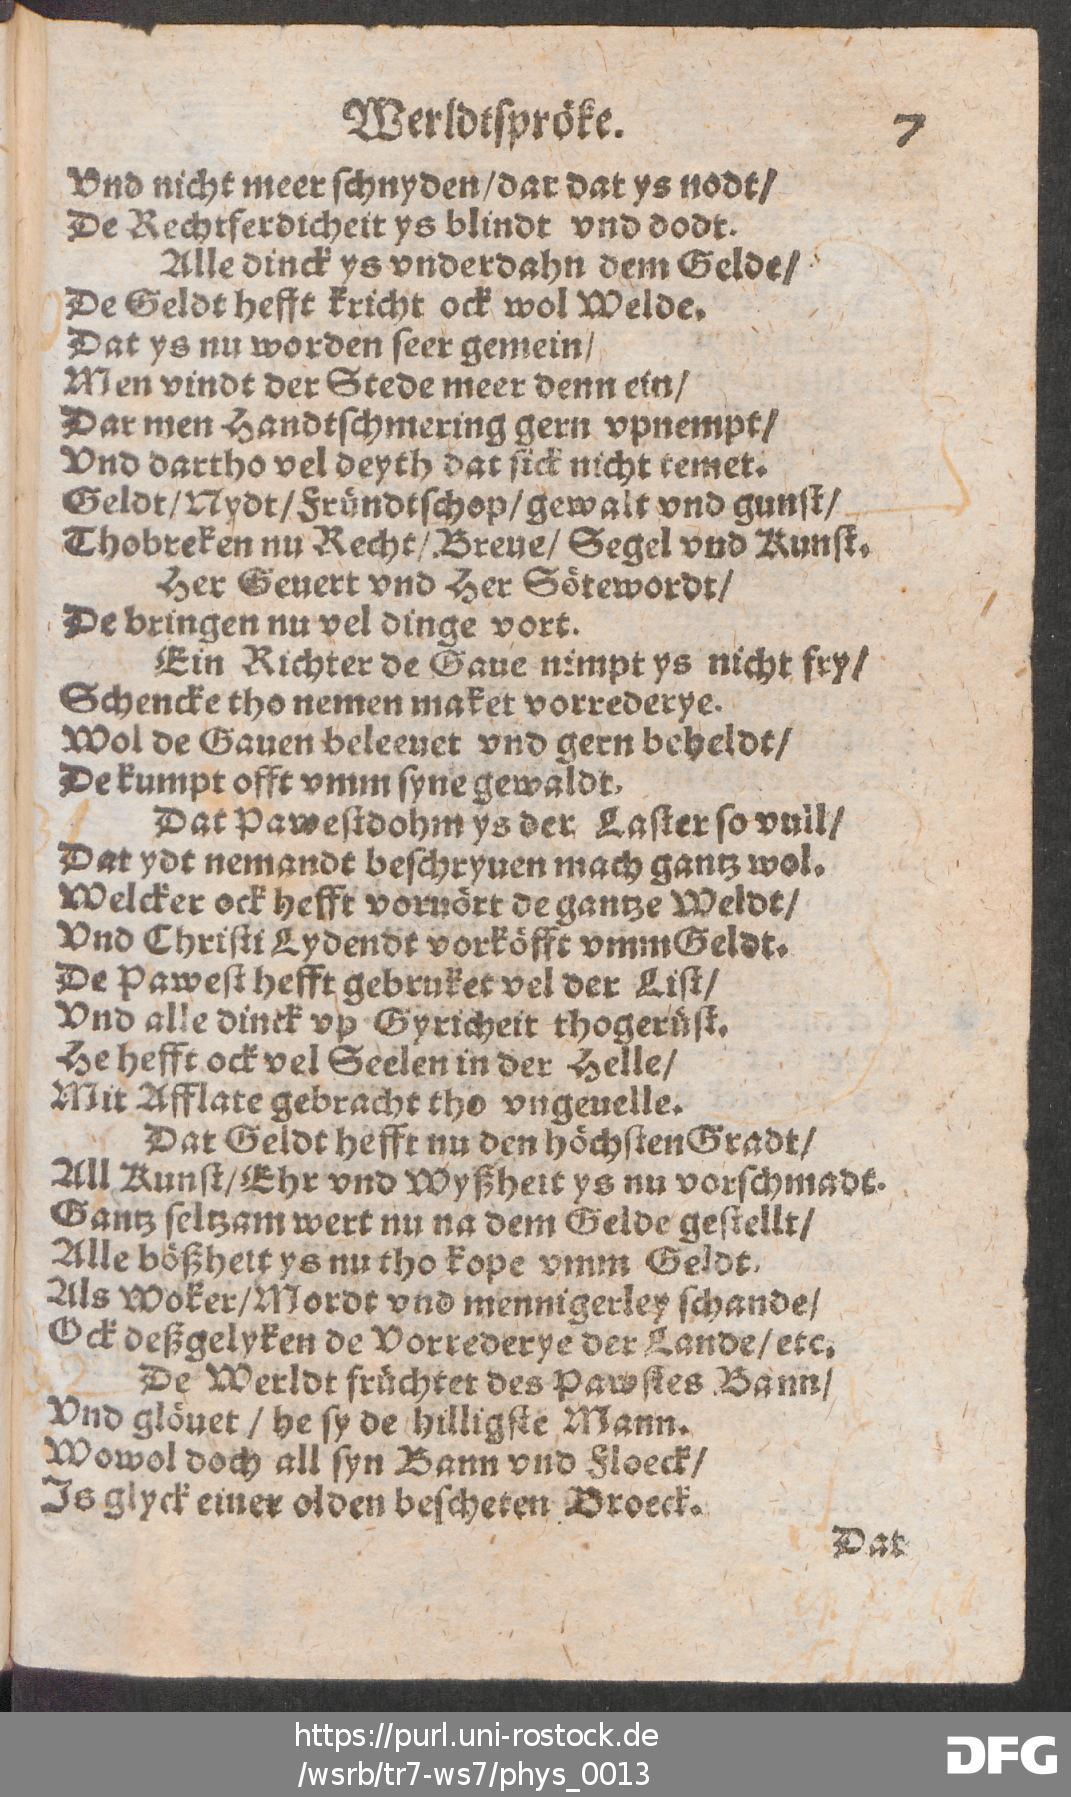 Werldtspröke. 7
Vnd nicht meer schnyden/dar dat ys nodt/
De Rechtferdicheit ys blindt vnd dodt.
Alle dinck ys vnderdahn dem Gelde/
De Geldt hefft kricht ock wol Welde.
Dat ys nu worden seer gemein/
Men vindt der Stede meer denn ein/
Dar men Handtschmering gern vpnempt/
Vnd dartho vel deyth dat sick nicht temet.
Geldt/Nydt/Fründtschop/gewalt vnd gunst/
Thobreken nu Recht/Breue/ Segel vnd Kunst.
Her Geuert vnd Her Sötewordt/
De bringen nu vel dinge vort.
Ein Richter de Gaue nimpt ys nicht fry/
Schencke tho nemen maket vorrederye.
Wol de Gauen beleeuet vnd gern beheldt/
De kumpt offt vmm syne gewaldt.
Dat Pawestdohm ys der Laster so vull/
Dat ydt nemandt beschryuen mach gantz wol.
Welcker ock hefft voruört de gantze Weldt/
Vnd Christi Lydendt vorköfft vmm Geldt.
De Pawest hefft gebruket vel der List/
Vnd alle dinck vp Gyricheit thogerüst.
He hefft ock vel Seelen in der Helle/
Mit Afflate gebracht tho vngeuelle.
Dat Geldt hefft nu den höchsten Gradt/
All Kunst/Ehr vnd Wyßheit ys nu vorschmadt.
Gantz seltzam wert nu na dem Gelde gestellt/
Alle bößheit ys nu tho kope vmm Geldt.
Als Woker/Mordt vnd mennigerley schande/
Ock deßgelyken de Vorrederye der Lande/etc.
De Werldt früchtet des Pawstes Bann/
Vnd glöuet / he sy de hilligste Mann.
Wowol doch all syn Bann vnd Floeck/
Is glyck einer olden bescheten Broeck.
Dat
https://purl.uni-rostock.de
/wsrb/tr7-ws7/phys_0013
DFG